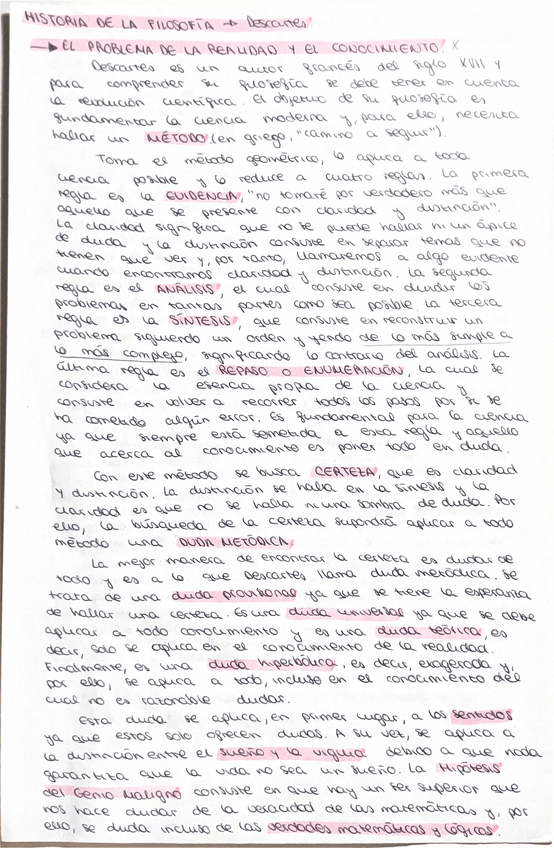 HISTORIA DE LA FILOSOFÍA → Descartes
→ EL PROBLEMA DE LA REALIDAD Y EL CONOCIMIENTO. X
Descartes es un autor francés del siglo XVII y
para comprender su filosofía se debe tener en cuenta
la revolución científica. El objetivo de su filosofía es
fundamentar la ciencia moderna y, para ello, necesita
hallar un MÉTODO (en griego, "camino a seguir").
Toma el método geométrico, lo aplica a toda
ciencia posible y lo reduce a cuatro reglas. La primera
regla es la EVIDENCIA, "no tomaré por verdadero más que
aquello que se presente con claridad y distinción".
La claridad significa que no te puede hallar ni un ápice
de duda y la distinción consiste en separar temas que no
tienen que ver y, por tanto, llamaremos a algo evidente
cuando encontramos claridad y distinción. La segunda
regla es el ANÁLISIS, el cual consiste en dividir los
problemas en tantas partes como sea posible. La tercera
regla es la SÍNTESIS, que consiste en reconstruir un
problema siguiendo un orden y yendo de lo más simple a
lo más complejo, significando lo contrario del análisis. La
última regla es el REPASO o ENUMERACIÓN, la cual se
considera la esencia propia de la ciencia y
consiste en volver a recorrer todos los pasos por si se
ha cometido algún error. Es fundamental para la ciencia
ya que siempre está sometida a esta regla y aquello
que acerca al conocimiento es poner todo en duda.
Con este método se busca CERTEZA, que es claridad
y distinción. La distinción se halla en la síntesis y la
claridad es que no se halla ni una sombra de duda. Por
ello, la búsqueda de la certeza supondrá aplicar a todo
método una DUDA METÓDICA.
La mejor manera de encontrar la certeza es dudar de
todo y es a lo que Descartes llama duda metódica. Se
trata de una duda provisional ya que se tiene la esperanza
de hallar una certeza. Es una duda universal ya que se debe
aplicar a todo conocimiento y es una duda teórica, es
decir, solo se aplica en el conocimiento de la realidad.
Finalmente, es una duda hiperbólica, es decir, exagerada y,
por ello, se aplica a todo, incluso en el conocimiento del
cual no es razonable dudar.
Esta duda se aplica, en primer lugar, a los sentidos
ya que estos solo ofrecen dudas. A su vez, se aplica a
la distinción entre el sueño y la vigilia debido a que nada
garantiza que la vida no sea un sueño. La Hipótesis
del Genio Maligno consiste en que hay un ser superior que
nos hace dudar de la veracidad de las matemáticas y, por
ello, se duda incluso de las verdades matemáticas y lógicas.